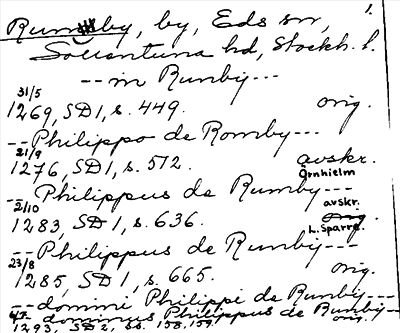 1.
Rumby, by, Eds sn,
Sollentuna hd, Stockh. l.
-- in Runby ---
31/5
1269, SD 1, s. 449. orig.
-- Philippo de Romby ---
21/9
1276, SD 1, s. 512. avskr.
Örnhielm
-- Philippus de Rumby ---
2/10 avskr.
1283, SD 1, s. 636. orig.
L. Sparre
-- Philippus de Rumby ---
23/8
1285, SD 1, s. 665. orig.
-- domini Philippi de Rumby ---
dominus Philippus de Rumby --
1293, SD 2, ss. 158, 159. orig.